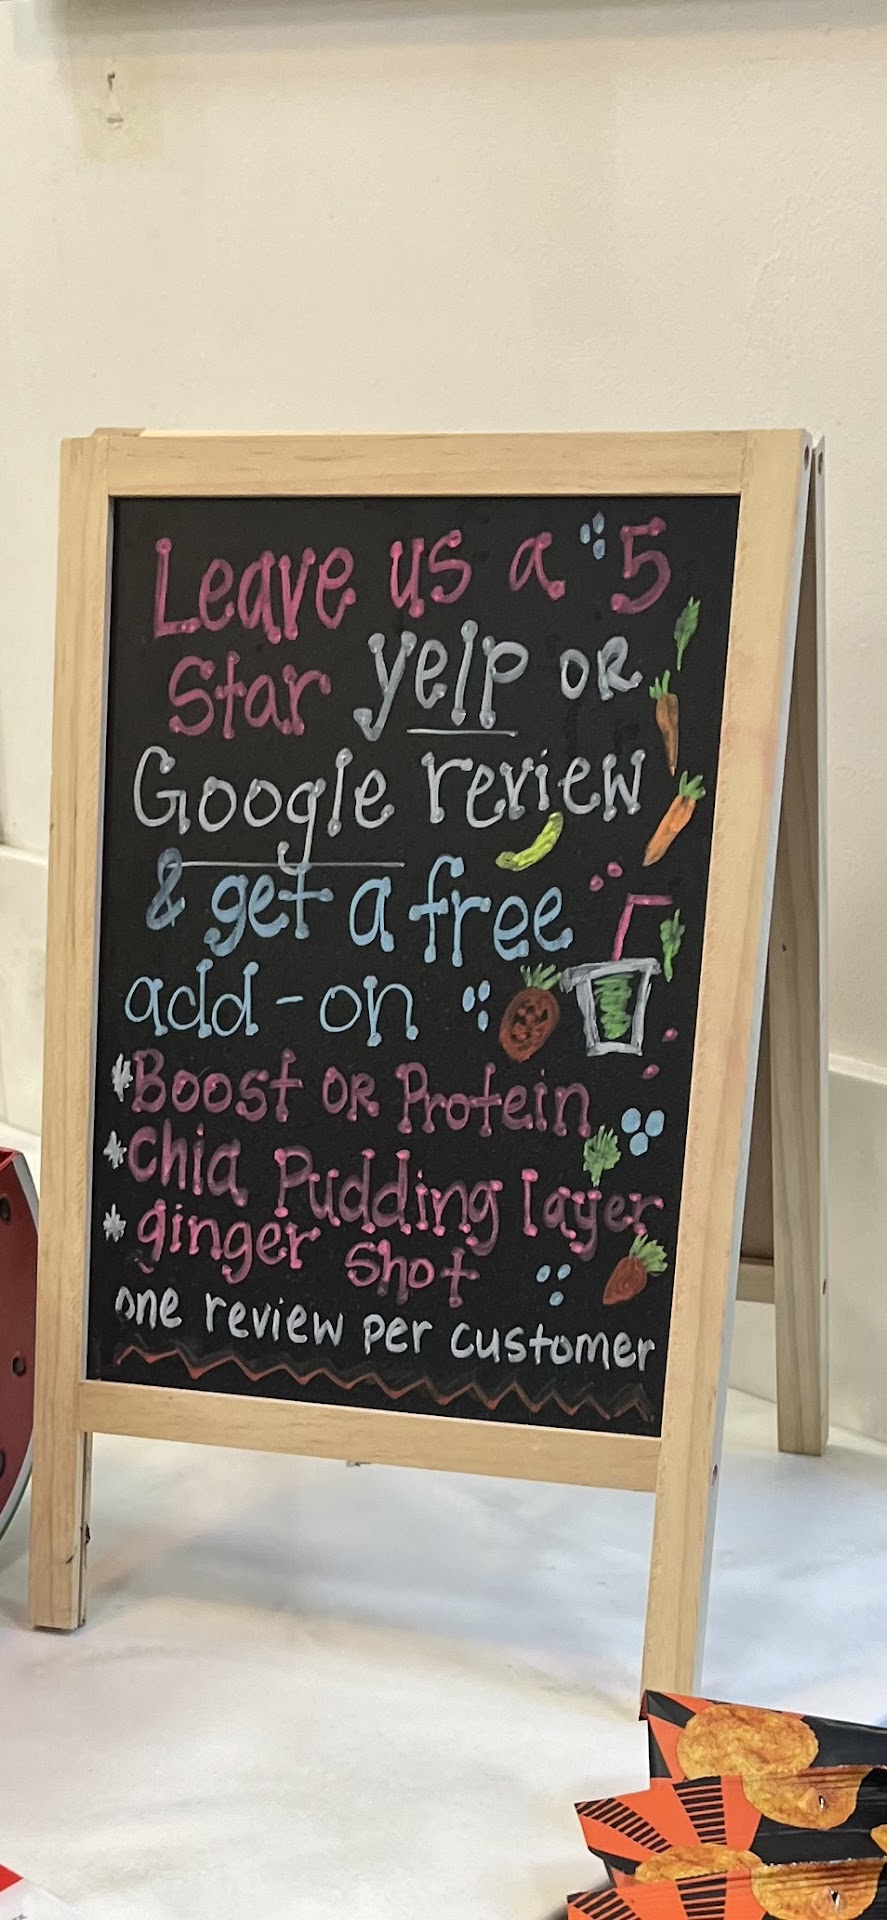 Leave us a 5
Star yelp OR
Google review
& get a free
add-on
*Boost OR Protein
*Chia Pudding layer
*ginger shot
one review per customer